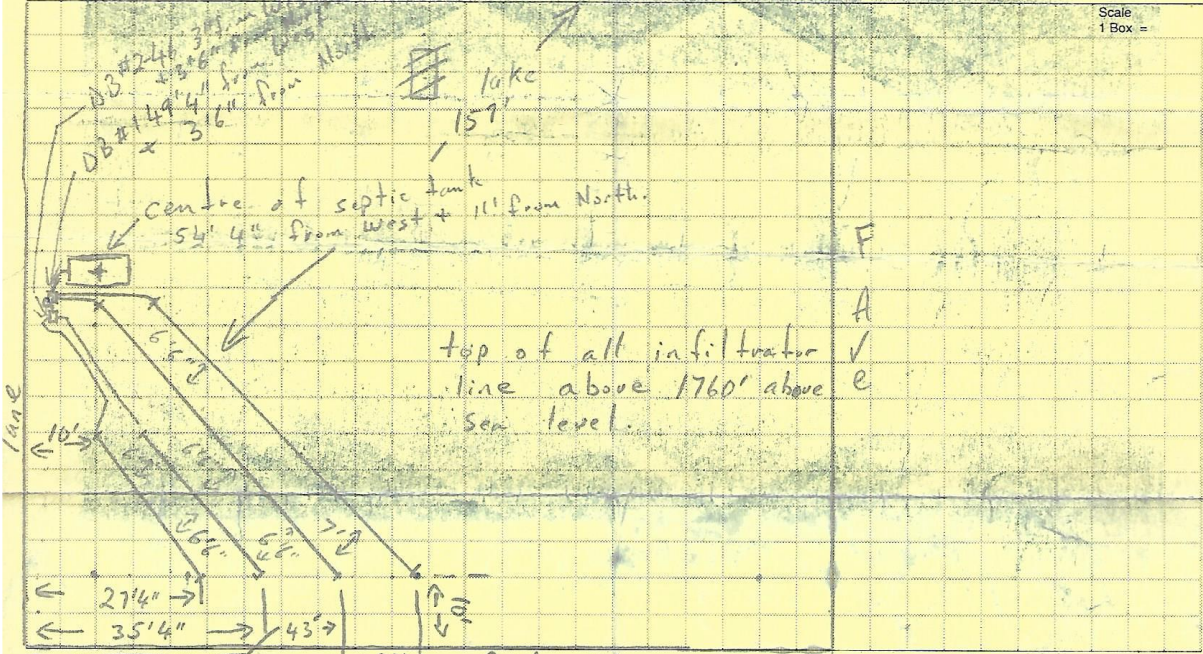 Scale
1 Box =
DB #2-46' 3"
+ 3'6"
DB #1 49' 4" from West
+ 3'6" from North
lake
157'
centre of septic tank
54' 4" from west + 11' from North.
F
A
v
e
top of all infiltrator
line above 1760' above
sea level.
lane
10'
6'6"
6'6"
6'6"
6'6"
7'
10'
27'4"
35'4"
43'